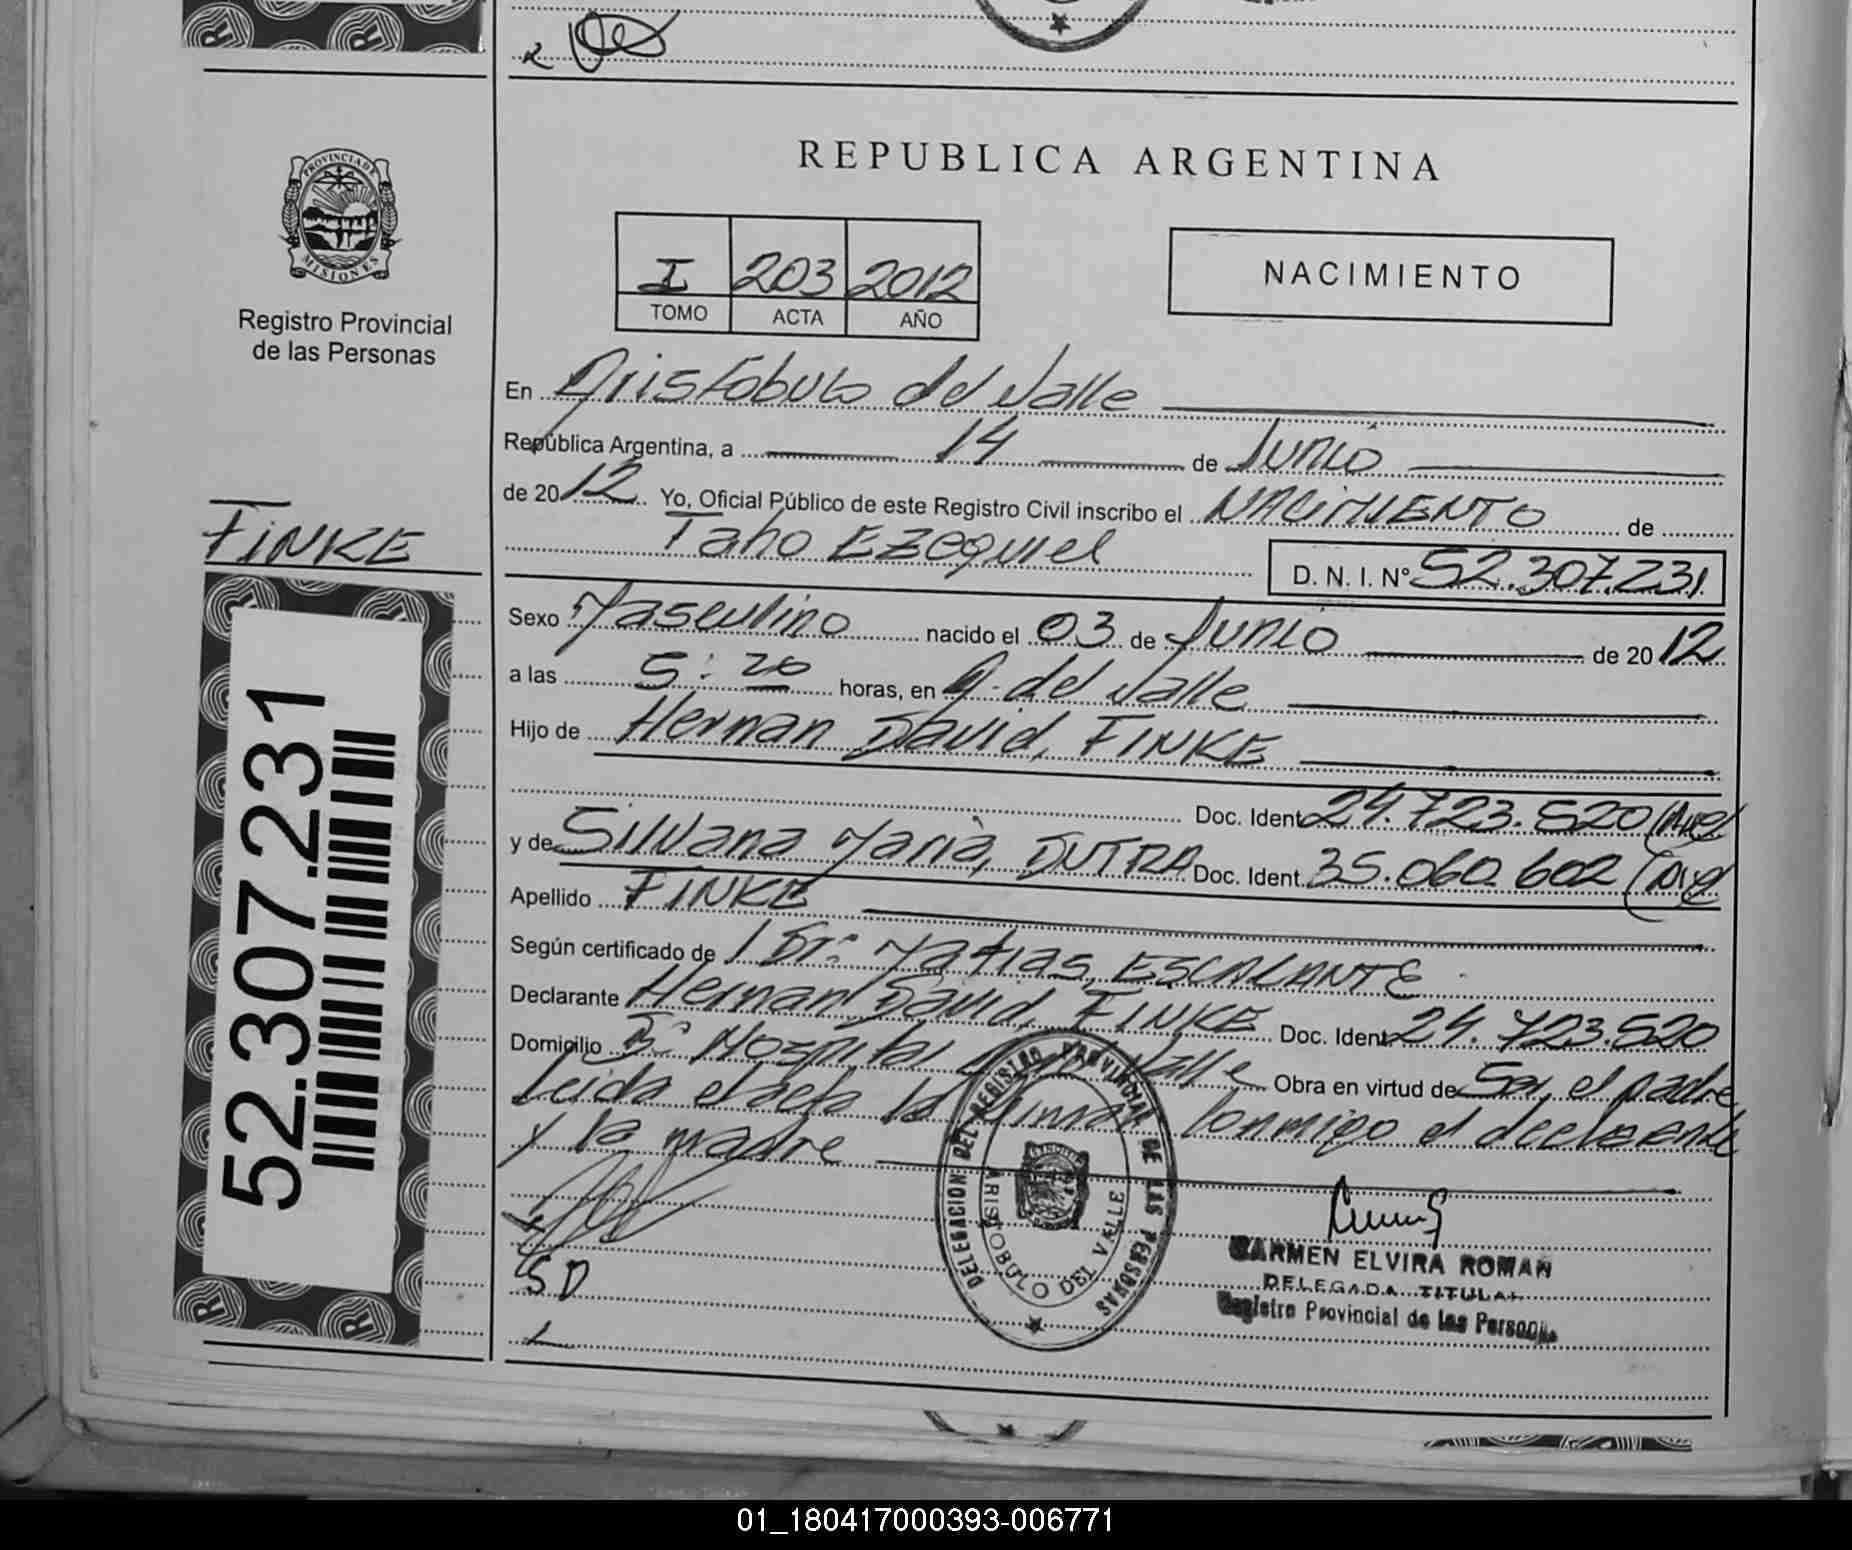 REPUBLICA ARGENTINA
PROVINCIA DE MISIONES
Registro Provincial
de las Personas
I 203 2012
TOMO ACTA AÑO
NACIMIENTO
En Aristobulo del Valle
República Argentina, a 14 de Junio
de 2012 Yo, Oficial Público de este Registro Civil inscribo el NACIMIENTO de
Taho Ezequiel D. N. I. Nº 52.307.231
FINKE
52.307.231
Sexo Masculino nacido el 03 de Junio de 2012
a las 5:20 horas, en A. del Valle
Hijo de Hernan David, FINKE
Doc. Ident. 24.723.520
y de Silvana Maria, DUTRA Doc. Ident. 35.060.602
Apellido FINKE
Según certificado de Dr. Matias, ESCALANTE
Declarante Hernan David, FINKE Doc. Ident. 24.723.520
Domicilio Bº Hospital Valle Obra en virtud de Ser el padre
Leida el acta la firman conmigo el declarante
y la madre
SD
DELEGACION DEL REGISTRO PROVINCIAL DE LAS PERSONAS
ARISTOBULO DEL VALLE
CARMEN ELVIRA ROMAN
DELEGADA TITULAR
Registro Provincial de las Personas
01_180417000393-006771